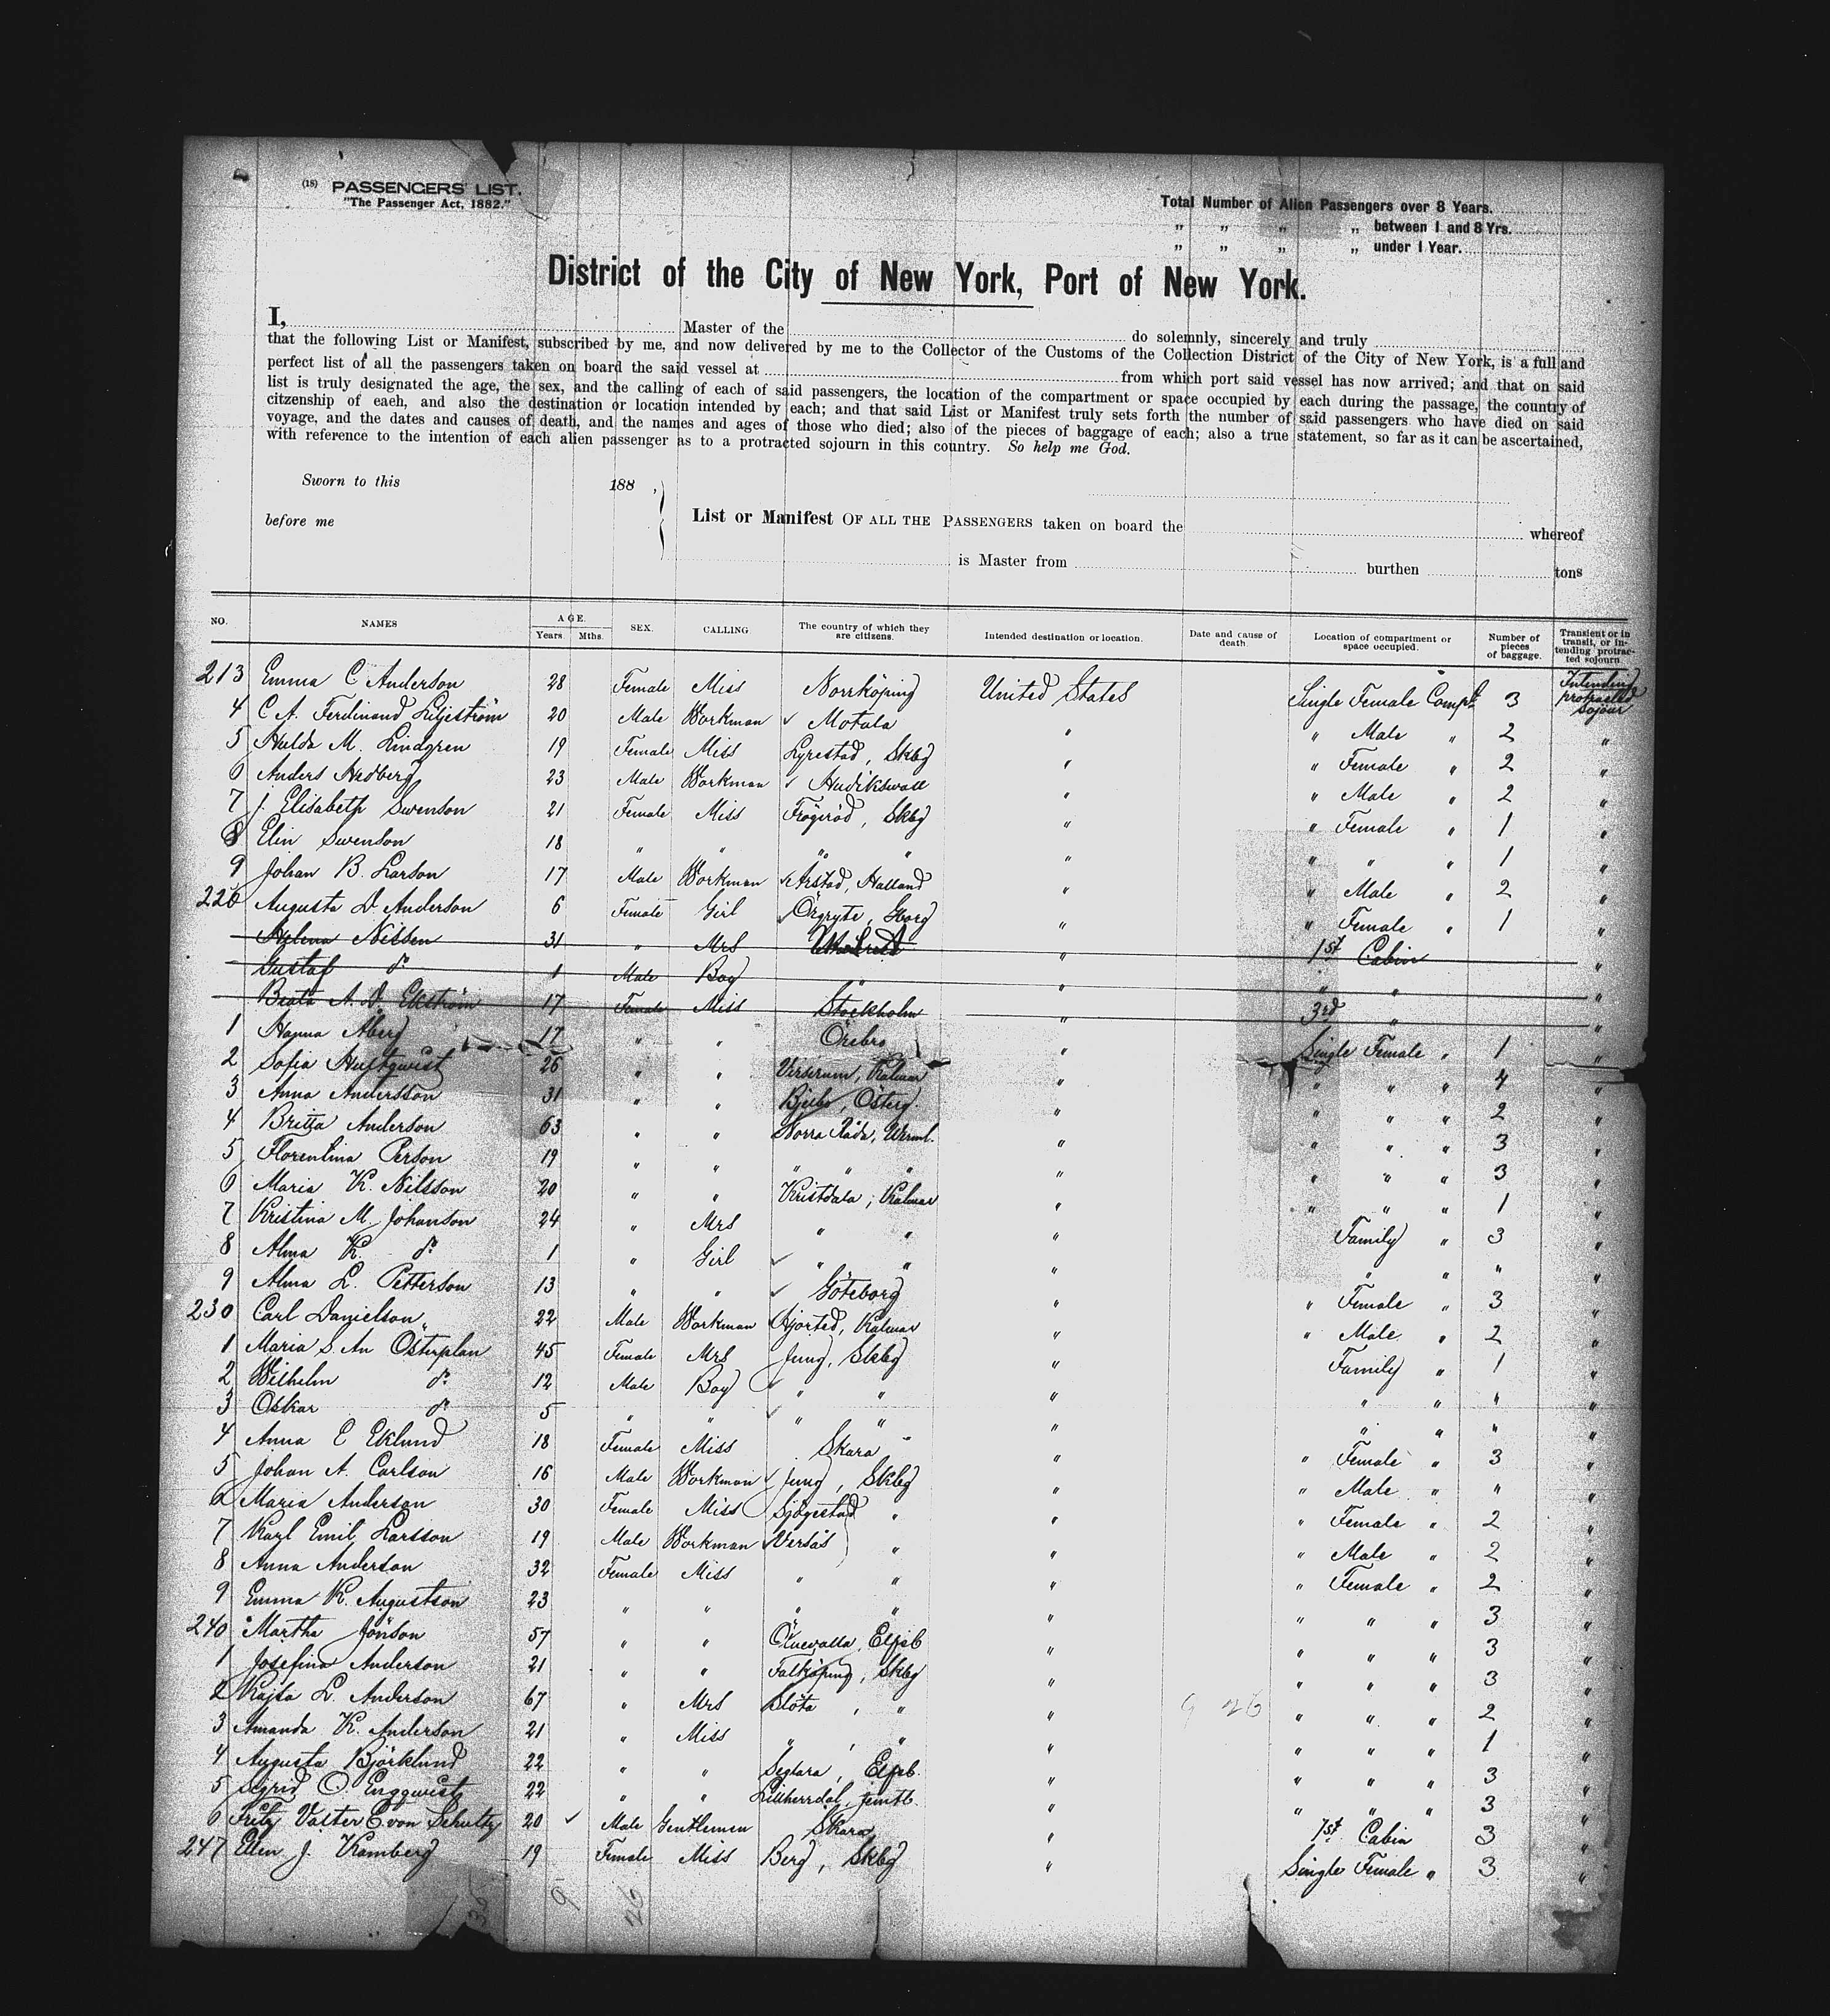 (18) PASSENGERS' LIST.
"The Passenger Act, 1882."
Total Number of Alien Passengers over 8 Years.
„ „ „ „ between 1 and 8 Yrs.
„ „ „ „ under 1 Year.
District of the City of New York, Port of New York.
I, Master of the do solemnly, sincerely and truly
that the following List or Manifest, subscribed by me, and now delivered by me to the Collector of the Customs of the Collection District of the City of New York, is a full and
perfect list of all the passengers taken on board the said vessel at from which port said vessel has now arrived; and that on said
list is truly designated the age, the sex, and the calling of each of said passengers, the location of the compartment or space occupied by each during the passage, the country of
citzenship of eaeh, and also the destination or location intended by each; and that said List or Manifest truly sets forth the number of said passengers who have died on said
voyage, and the dates and causes of death, and the names and ages of those who died; also of the pieces of baggage of each; also a true statement, so far as it can be ascertained,
with reference to the intention of each alien passenger as to a protracted sojourn in this country. So help me God.
Sworn to this 188 ,
before me
List or Manifest OF ALL THE PASSENGERS taken on board the whereof
is Master from burthen tons
NO. NAMES AGE. Years Mths. SEX. CALLING The country of which they are citizens. Intended destination or location. Date and cause of death. Location of compartment or space occupied. Number of pieces of baggage. Transient or in transit, or intending protracted sojourn.
213 Emma C Anderson 28 Female Miss Norrköping United States Single Female Compt 3 Intending protracted sojour
4 C A. Ferdinand Liljeström 20 Male Workman ✓ Motala " " Male " 2 "
5 Hulda M. Lindgren 19 Female Miss Lyrestad, Skbg " " Female " 2 "
6 Anders Hedberg 23 Male Workman ✓ Hudikswall " " Male " 2 "
7 J. Elisabeth Swenson 21 Female Miss Frögeröd, Skbg " " Female " 1 "
8 Elin Swenson 18 " " " " " " " " 1 "
9 Johan B. Larson 17 Male Workman ✓ Årstad, Halland " " Male " 2 "
220 Augusta D. Anderson 6 Female Girl ✓ Örgryte, Gborg " " Female " 1 "
Helena Nilsson 31 " Mrs " 1st Cabin "
Gustaf do 1 Male Boy " " " " "
Beata A. D. Ekström 17 Female Miss Stockholm " 3rd " "
1 Hanna Åberg 17 " " Örebro " Single Female " 1 "
2 Sofia 26 " " Virserum, Kalmar " " " " 4 "
3 Anna Andersson 31 " " Bjelbo, Österg. " " " " 2 "
4 Britta Anderson 63 " " Norra Råda, Werml. " " " " 3 "
5 Florentina Person 19 " " " " " " " " " 3 "
6 Maria K. Nilsson 20 " " Kristdala, Kalmar " " " " 1 "
7 Kristina M. Johanson 24 " Mrs " " " Family " 3 "
8 Alma K. do 1 " Girl ✓ " " " " " " "
9 Alma L. Petterson 13 " " ✓ Göteborg " " Female " 3 "
230 Carl Danielson 22 Male Workman Hjorted, Kalmar " " Male " 2 "
1 Maria S. An Österplan 45 Female Mrs Jung, Skbg " Family " 1 "
2 Wilhelm do 12 Male Boy ✓ " " " " " " "
3 Oskar do 5 " " ✓ " " " " " " "
4 Anna E Eklund 18 Female Miss Skara " " Female " 3 "
5 Johan A. Carlson 16 Male Workman ✓ Jung, Skbg " " Male " " "
6 Maria Anderson 30 Female Miss Sjögestad " " " Female " 2 "
7 Karl Emil Larsson 19 Male Workman ✓ Versås " " " Male " 2 "
8 Anna Anderson 32 Female Miss " " " " Female " 2 "
9 Emma K. Augustson 23 " " " " " " " " 3 "
240 Martha Jönson 57 " " Elfsb " " " " 3 "
1 Josefina Anderson 21 " " Falköping, Skbg " " " " 3 "
2 Kajsa L. Anderson 67 " Mrs Slöta, " " 9 26 " " " 2 "
3 Amanda K. Anderson 21 " Miss " , " " " " " 1 "
4 Augusta Björklund 22 " " Seglara, Elfsb. " " " " 3 "
5 Sigrid O. Engqwist 22 " " Lillherrdal, Jemtl. " " " " 3 "
6 Fritz Valter E. von Schultz 20 ✓ Male Gentlemen Skara " 1st Cabin 3 "
247 Elin J. Kamberg 19 Female Miss Berg, Skbg " Single Female " 3 "
36 9 26